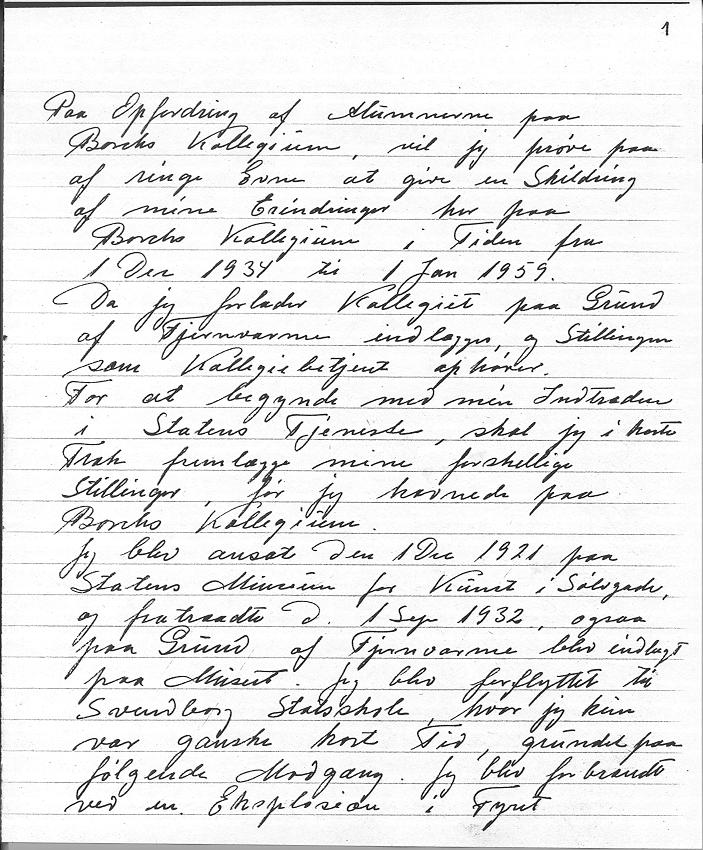 1
Paa Opfordring af Alumnerne paa
Borchs Kollegium, vil jeg prøve paa
af ringe Evne at give en Skildring
af mine Erindringer her paa
Borchs Kollegium i Tiden fra
1 Dec 1934 til 1 Jan 1959.
Da jeg forlader Kollegiet paa Grund
af Fjernvarme indlægges, og Stillingen
som Kollegiebetjent ophører.
For at begynde med min Indtræden
i Statens Tjeneste, skal jeg i korte
Træk fremlægge mine forskellige
Stillinger, før jeg havnede paa
Borchs Kollegium.
Jeg blev ansat den 1 Dec 1921 paa
Statens Museum for Kunst i Sølvgade,
og fratraadte d. 1 Sep 1932, ogsaa
paa Grund af Fjernvarme blev indlagt
paa Museet. Jeg blev forflyttet til
Svendborg Statsskole, hvor jeg kun
var ganske kort Tid, grundet paa
følgende Modgang. Jeg blev forbrændt
ved en Eksplosion i Fyret